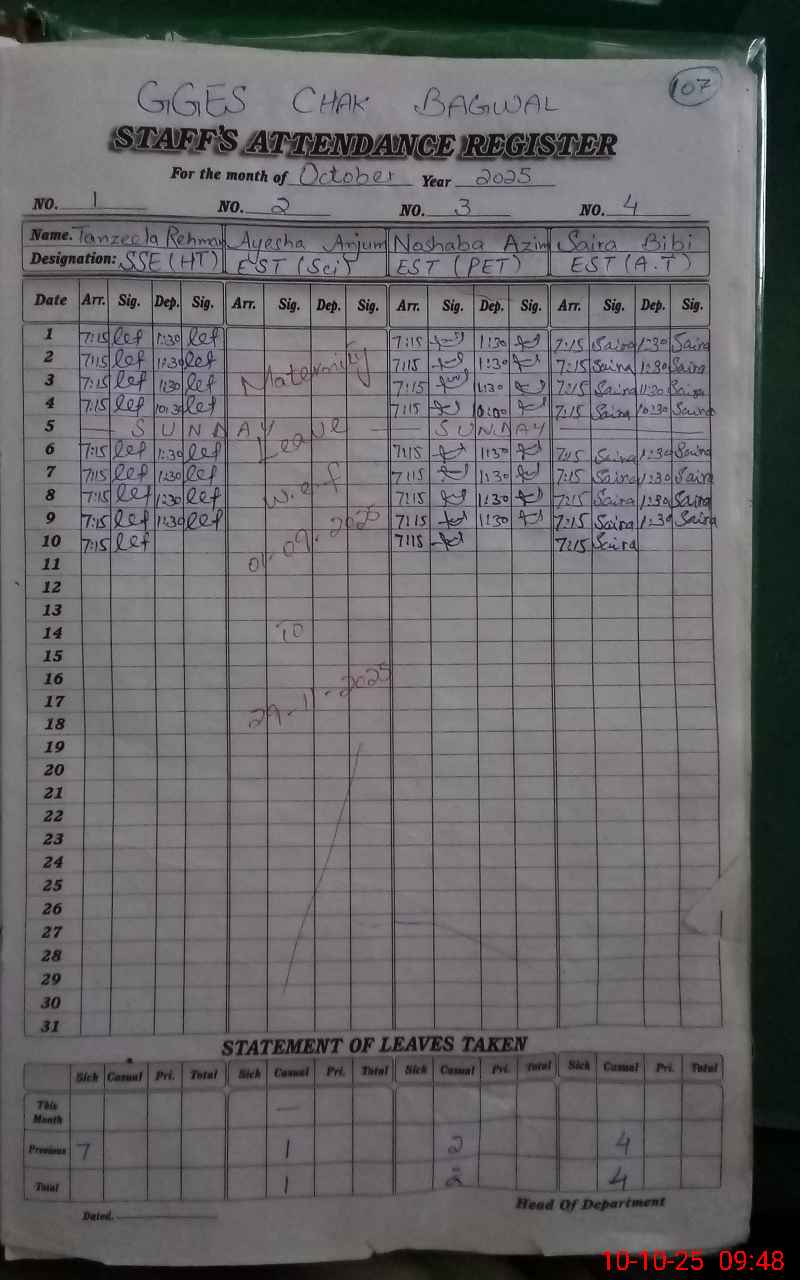 107
GGES CHAK BAGWAL
STAFF'S ATTENDANCE REGISTER
For the month of October Year 2025
NO. 1 NO. 2 NO. 3 NO. 4
Name. Tanzeela Rehman Ayesha Anjum Noshaba Azim Saira Bibi
Designation: SSE (HT) EST (Sci) EST (PET) EST (A.T)
Date Arr. Sig. Dep. Sig. Arr. Sig. Dep. Sig. Arr. Sig. Dep. Sig. Arr. Sig. Dep. Sig.
1 7:15 1:30 7:15 1:30 7:15 Saira 1:30 Saira
2 7:15 1:30 Maternity 7:15 1:30 7:15 Saira 1:30 Saira
3 7:15 1:30 7:15 1:30 7:15 Saira 11:30 Saira
4 7:15 10:30 7:15 10:00 7:15 Saira 10:30 Saira
5 — SUNDAY — Leave — SUNDAY —
6 7:15 1:30 7:15 1:30 7:15 Saira 1:30 Saira
7 7:15 1:30 w.e.f 7:15 1:30 7:15 Saira 1:30 Saira
8 7:15 1:30 7:15 1:30 7:15 Saira 1:30 Saira
9 7:15 1:30 01-09-2025 7:15 1:30 7:15 Saira 1:30 Saira
10 7:15 7:15 7:15 Saira
11
12
13
14 To
15
16
17 29-11-2025
18
19
20
21
22
23
24
25
26
27
28
29
30
31
STATEMENT OF LEAVES TAKEN
Sick Casual Pri. Total Sick Casual Pri. Total Sick Casual Pri. Total Sick Casual Pri. Total
This Month —
Previous 7 1 2 4
Total 1 2 4
Dated. Head Of Department
10-10-25 09:48